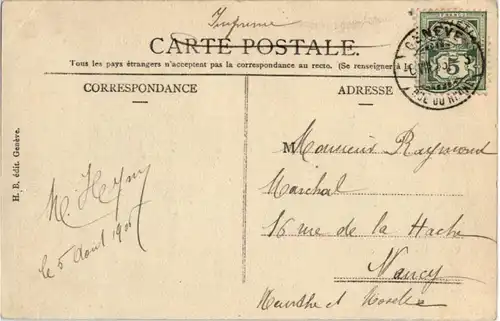 Imprimé
CARTE POSTALE.
Tous les pays étrangers n'acceptent pas la correspondance au recto. (Se renseigner à
CORRESPONDANCE
ADRESSE
GENÈVE
5
RUE DU RHÔNE
H. B. édit. Genève.
M. Heyny
le 5 Août 190
M Monsieur Raymond
Marchal
16 rue de la Hache
Nancy
Meurthe et Moselle